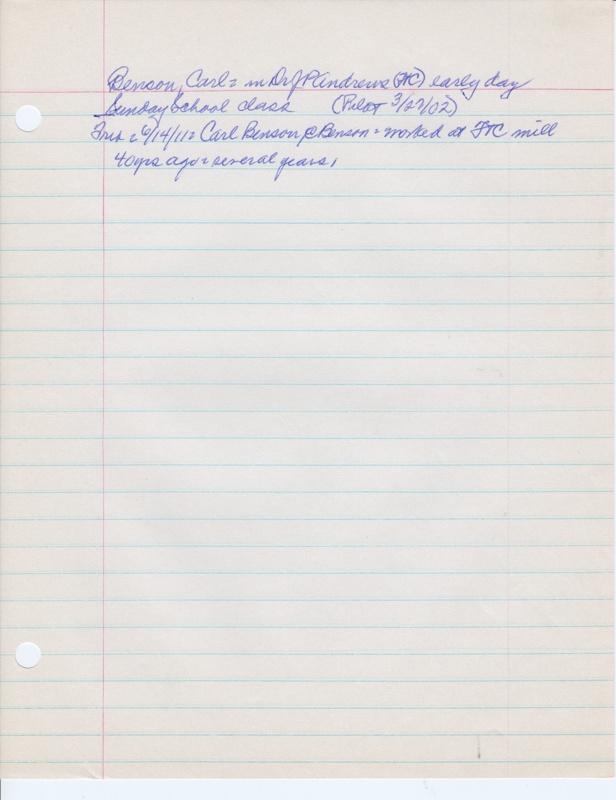 Benson, Carl = in Dr J P Andrews (FTC) early day
Sunday School class (Pilot 3/27/02)
= 6/14/11 = Carl Benson, Benson = worked at FTC mill
40 yrs ago = several years,